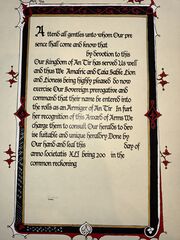 Attend all gentles unto whom Our pre
sence shall come and know that
by devotion to this
Our Kingdom of An Tir has served Us well
and thus We Amalric and Caia Sable Lion
and Lioness being highly pleased do now
exercise Our Sovereign prerogative and
command that their name be entered into
the rolls as an Armiger of An Tir In fur
her recognition of this Award of Arms We
charge them to consult Our heralds to devi
se suitable and unique heraldry Done by
Our hand and Seal this day of
anno societatis XLI being 200 in the
common reckoning